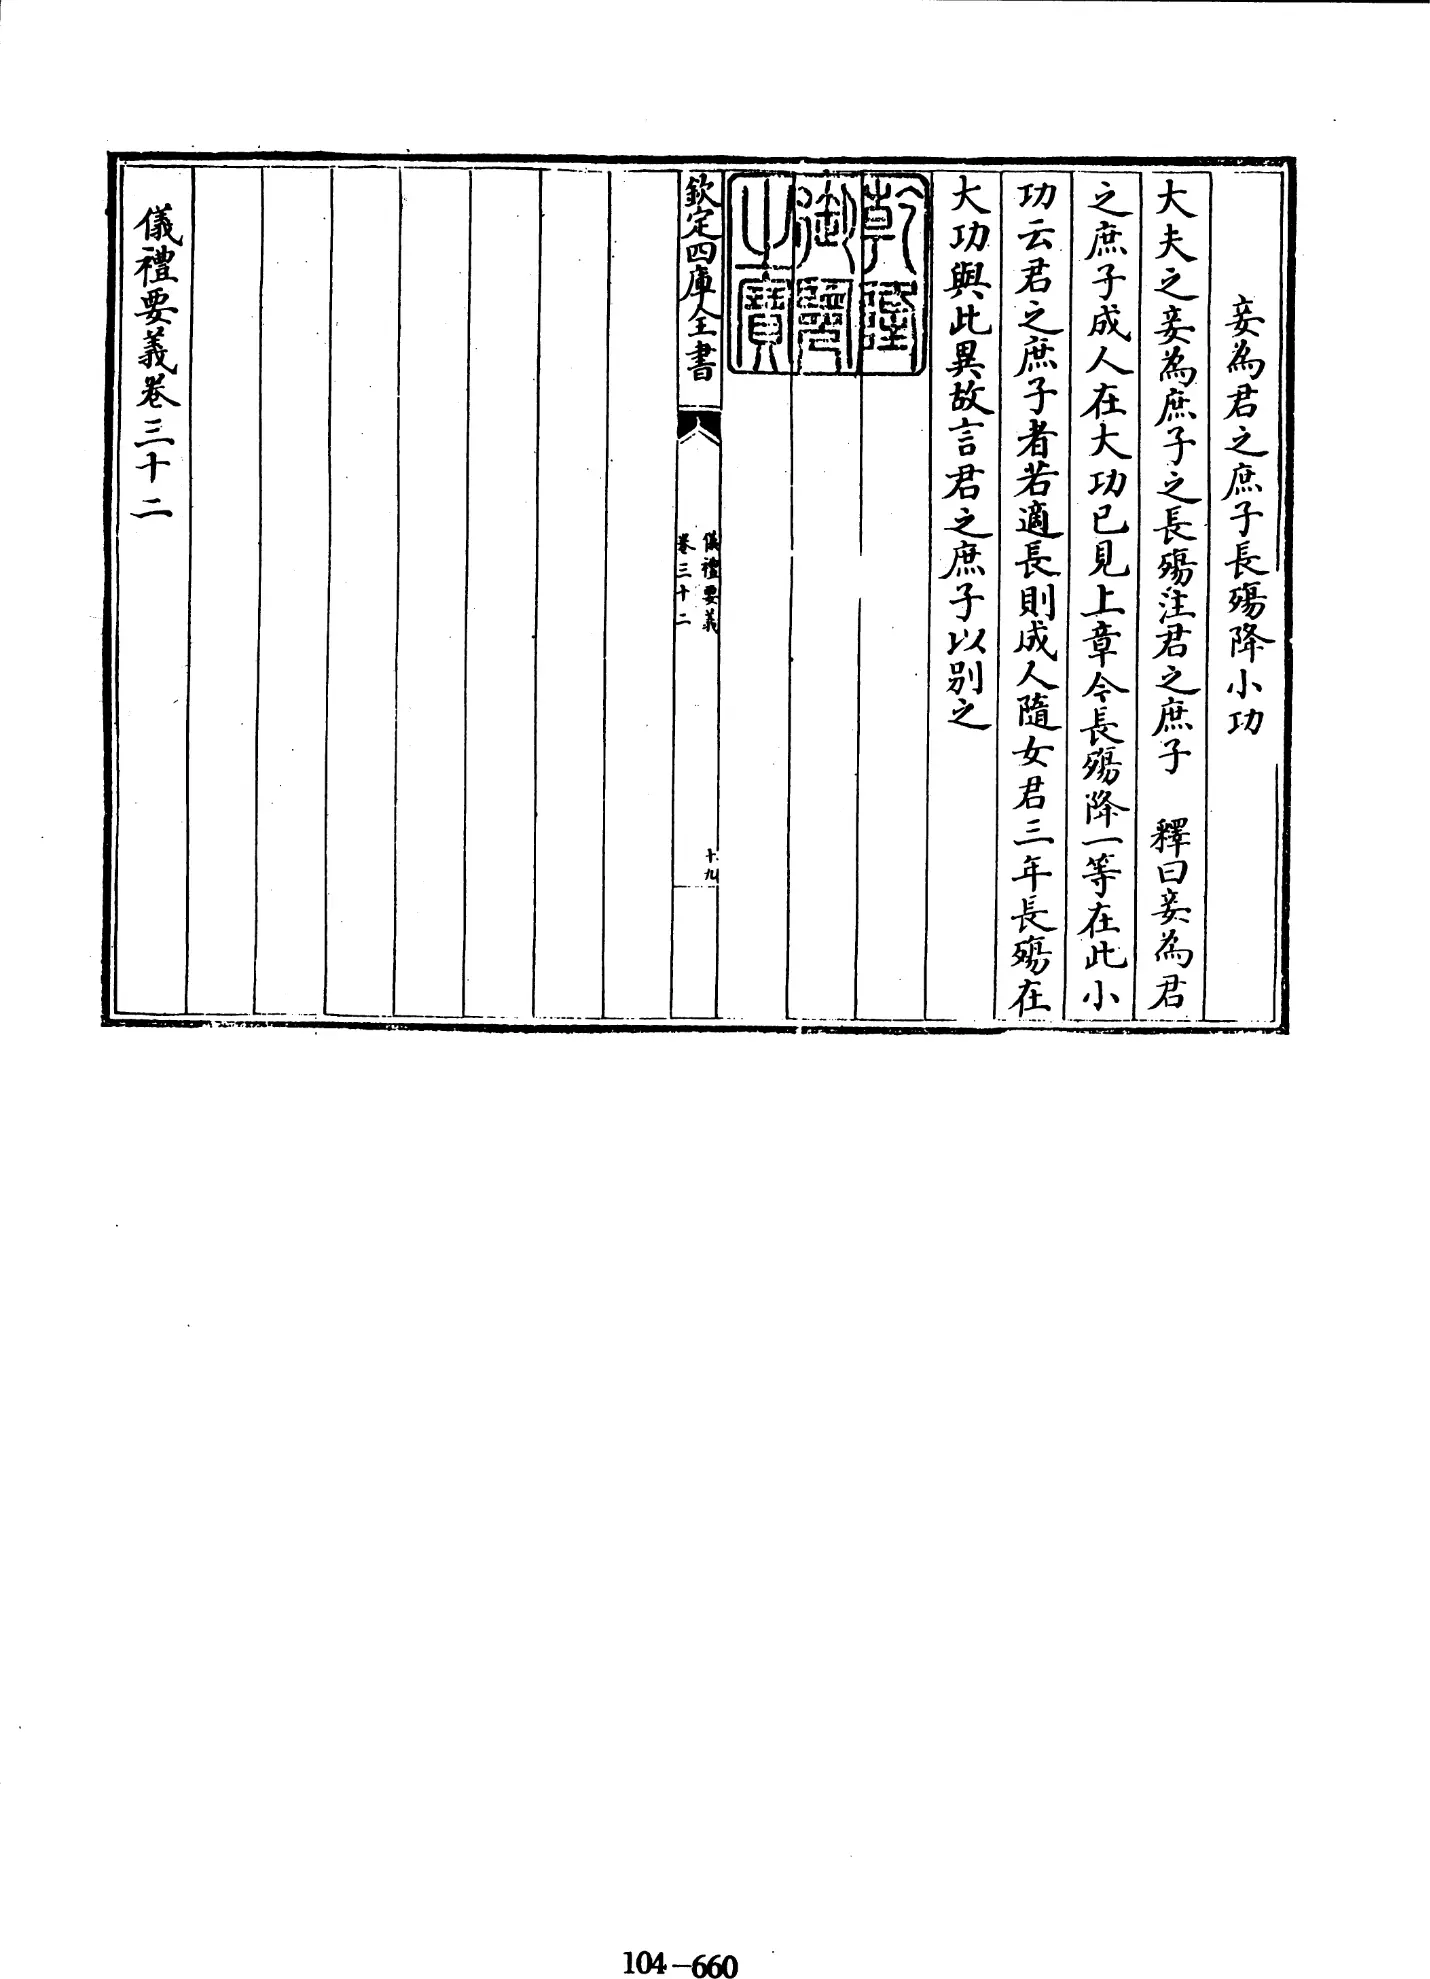 妾為君之庶子長殤降小功
大夫之妾為庶子之長殤注君之庶子　釋曰妾為君
之庶子成人在大功已見上章今長殤降一等在此小
功云君之庶子者若適長則成人隨女君三年長殤在
大功與此異故言君之庶子以別之
乾隆
御覽
之寶
欽定四庫全書
儀禮要義
卷三十二
十九
儀禮要義卷三十二
104-660